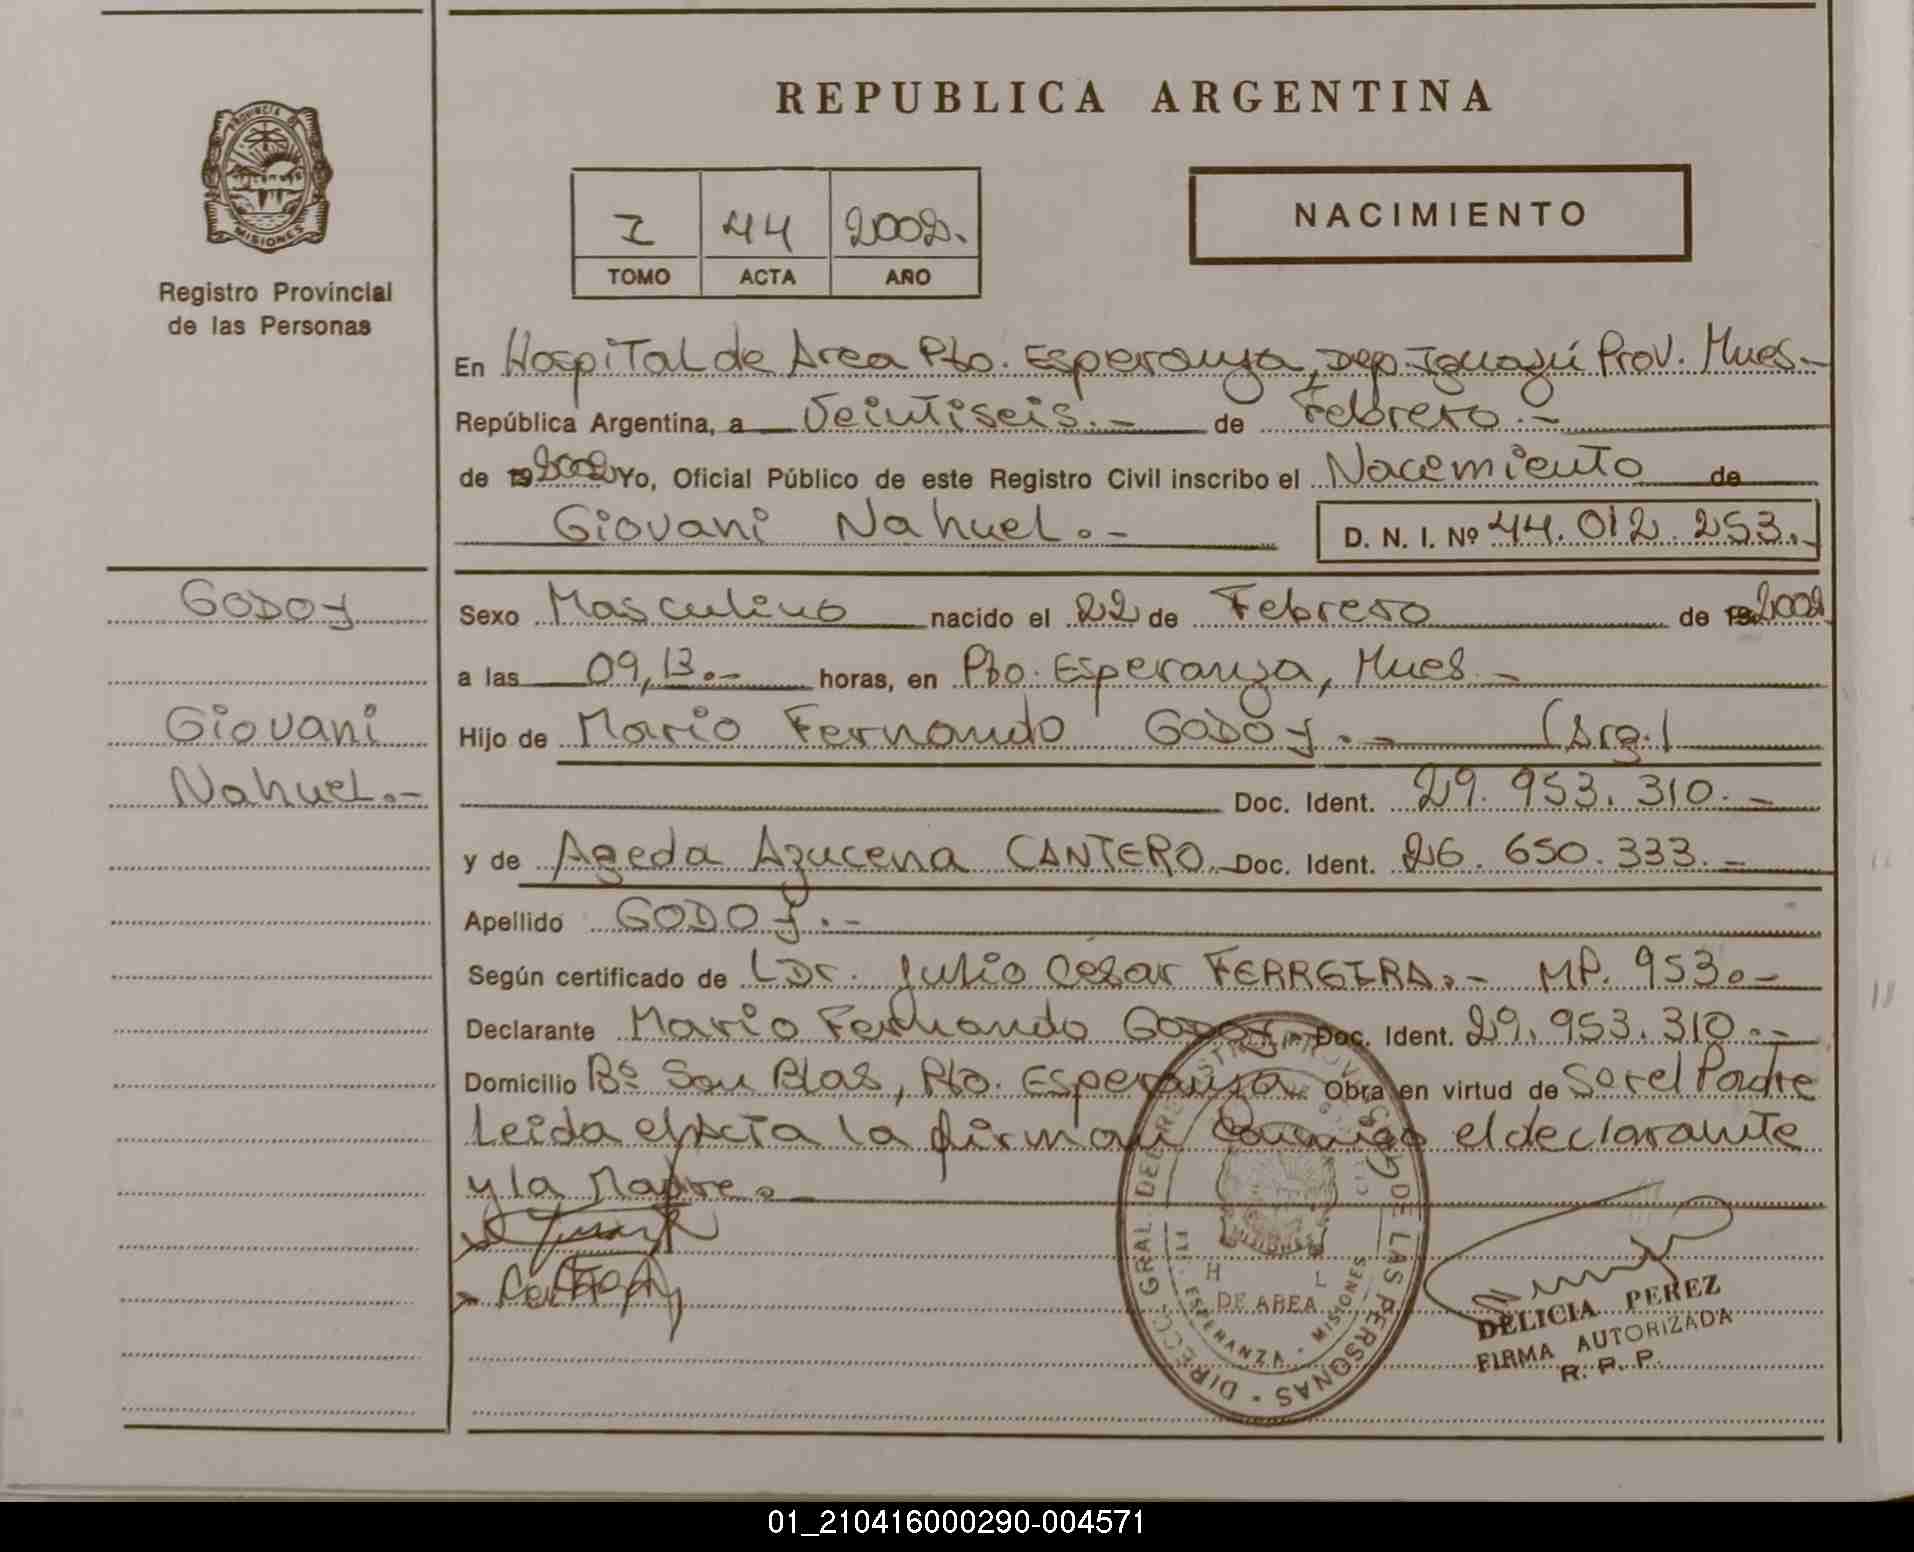 REPUBLICA ARGENTINA
PROVINCIA DE
MISIONES
Registro Provincial
de las Personas
I 44 2002.
TOMO ACTA AÑO
NACIMIENTO
En Hospital de Area Pto. Esperanza, Dep. Iguazú Prov. Mnes.-
República Argentina, a Veintiseis.- de Febrero.-
de 19 2002 Yo, Oficial Público de este Registro Civil inscribo el Nacimiento de
Giovani Nahuel.- D. N. I. Nº 44.012.253.-
GODOY
Sexo Masculino nacido el 22 de Febrero de 19 2002
a las 09,13.- horas, en Pto. Esperanza, Mnes.-
Giovani
Hijo de Mario Fernando GODOY.- (Arg.)
Nahuel.-
Doc. Ident. 29.953.310.-
y de Ageda Azucena CANTERO.- Doc. Ident. 26.650.333.-
Apellido GODOY.-
Según certificado de Dr. Julio César FERREIRA.- MP. 953.-
Declarante Mario Fernando Godoy Doc. Ident. 29.953.310.-
Domicilio Bº San Blas, Pto. Esperanza Obra en virtud de Ser el Padre
Leida el Acta la firman conmigo el declarante
y la Madre.-
DE AREA
ESPERANZA - MISIONES
DE LAS PERSONAS
DELICIA PEREZ
FIRMA AUTORIZADA
R. P. P.
01_210416000290-004571